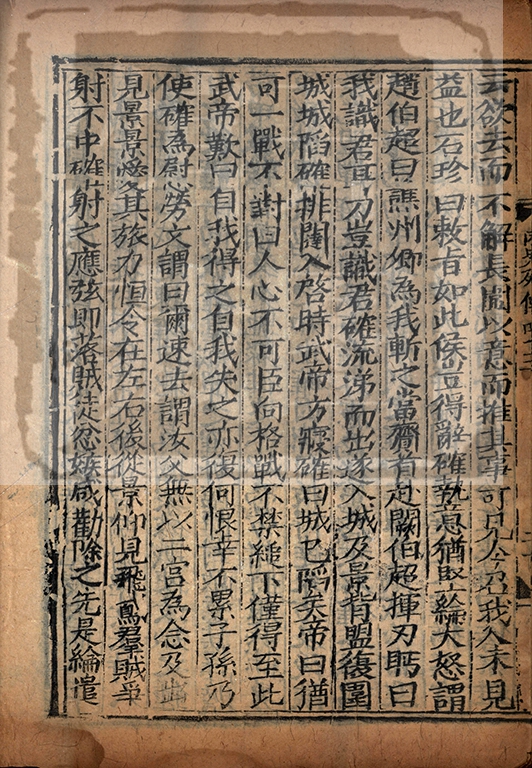 云欲去而不解長圍以意而推其事可見今召我入未見
益也石珍曰敕旨如此侯豈得辭確執意猶堅綸大怒謂
趙伯超曰譙州卿為我斬之當齎首赴闕伯超揮刃眄曰
我識君耳刀豈識君確流涕而出遂入城及景背盟復圍
城城䧟確排闥入啓時武帝方寢確曰城已䧟矣帝曰猶
可一戰不對曰人心不可臣向格戰不禁縋下僅得至此
武帝歎曰自我得之自我失之亦復何恨幸不累子孫乃
使確為慰勞文謂曰爾速去謂汝父無以二宮為念及出
見景景愛其旅力恒令在左右後從景仰見飛鳶羣賊爭
射不中確射之應弦即落賊徒忿嫉咸勸除之先是綸遣